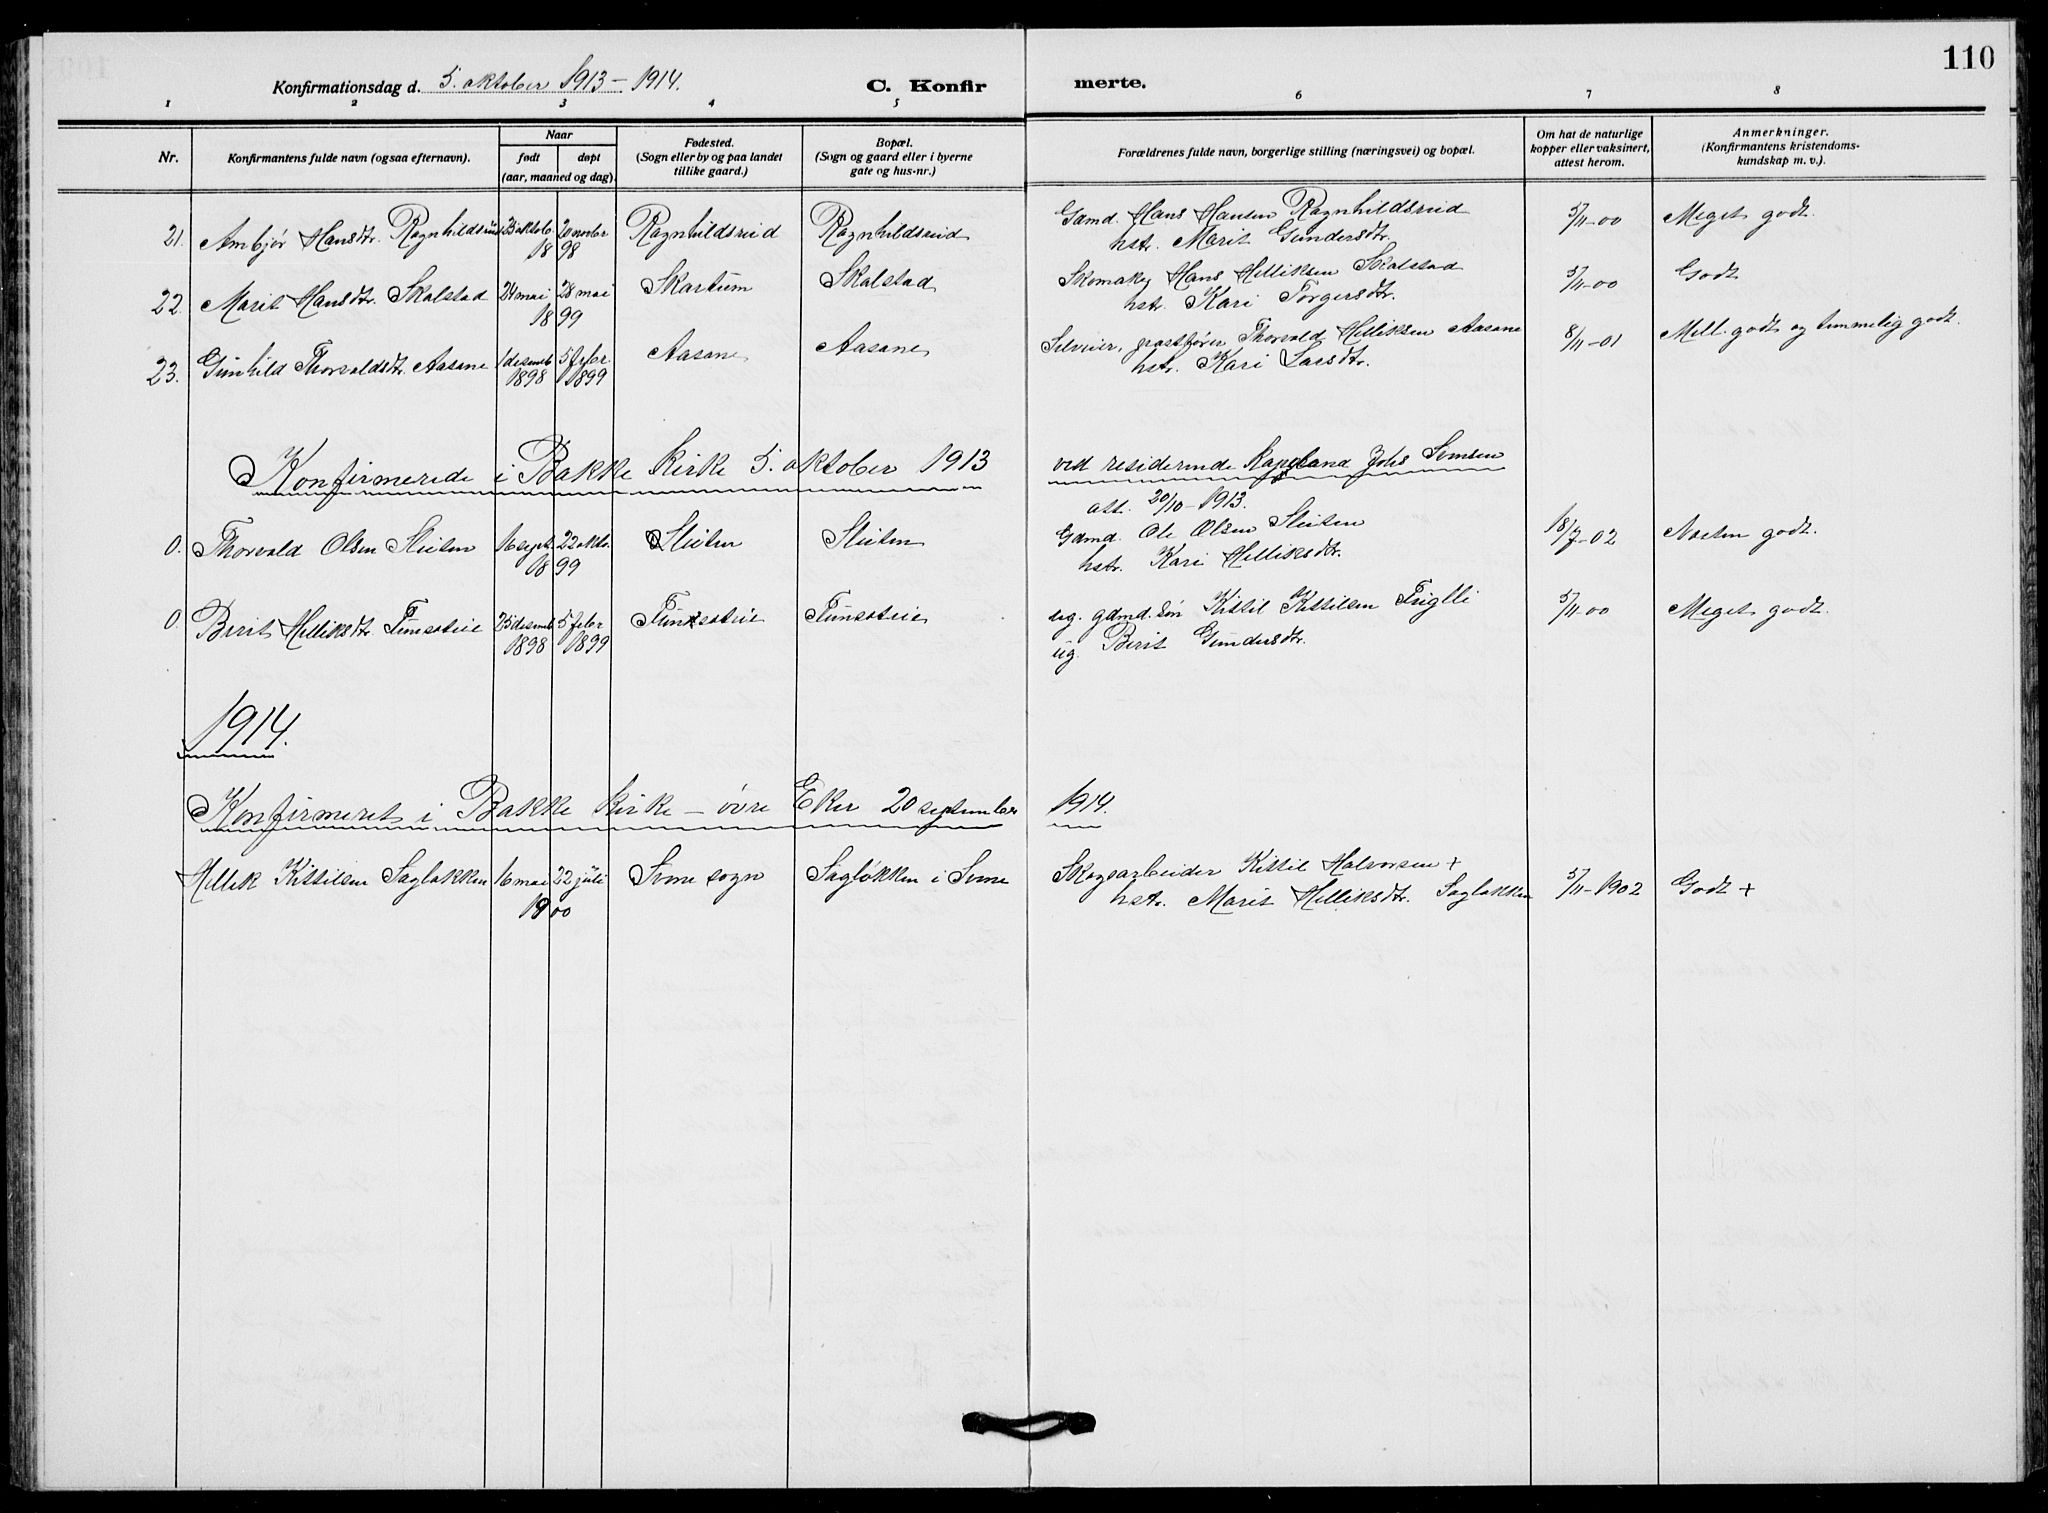 110
Konfirmationsdag d. 5. oktober 1913 – 1914. C. Konfir merte.
1 2 3 4 5 6 7 8
Nr.
Konfirmantens fulde navn (ogsaa efternavn).
Naar
født døpt
(aar, maaned og dag).
Fødested.
(Sogn eller by og paa landet
tillike gaard.)
Bopæl.
(Sogn og gaard eller i byerne
gate og hus-nr.)
Forældrenes fulde navn, borgerlige stilling (næringsvei) og bopæl.
Om hat de naturlige
kopper eller vaksinert,
attest herom.
Anmerkninger.
(Konfirmantens kristendoms-
kundskap m. v.).
21. Ambjør Hansdtr. Ragnhildsrud 20 novbr Ragnhildsrud Ragnhildsrud Gdmd. Hans Hansen Ragnhildsrud 5/11-00 Meget godt.
18 98 hstr. Marit Gundersdtr.
22. Marit Hansdtr. Skalstad 24 mai 28 mai Skartum Skalstad Skomaker Hans Helliksen Skalstad 5/11-00 Godt
18 99 hstr. Kari Torgersdtr.
23. Gunhild Thorvaldsdtr. Aasane 1 desemb 5 febr Aasane Aasane Selveier, Thorvald Helliksen Aasane 8/11-01 Mell. godt og temmelig godt.
1898 1899 hstr. Kari Larsdtr.
Konfirmerede i Bakke kirke 5. oktober 1913 ved residerende kapelland Johs Svensen
att. 20/10-1913.
0. Thorvald Olsen Sleiten 16 sept. 22 oktb. Sleiten Sleiten Gdmd. Ole Olsen Sleiten 18/7-02 Næsten godt.
18 99 hstr. Kari Helliksdtr.
0. Berit Helliksdtr. Tunsoteie 25 desemb 5 febr Tunsoteie Tunsoteie ug. gdmd. søn Kittil Kittilsen 5/11 00 Meget godt.
1898 1899 ug. Berit Gundersdtr.
1914.
Konfirmeret i Bakke kirke – övre Eker 20 september 1914.
Hellik Kittilsen Sagløkken 16 mai 22 juli Svene sogn Sagløkken i Svene Skogsarbeider Kittil Halvorsen + 5/11-1902 Godt +
19 00 hstr. Marit Helliksdtr. Sagløkken